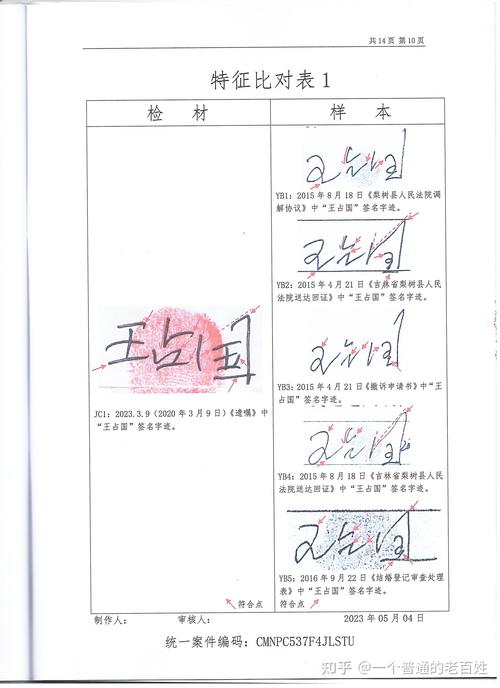 共14页 第10页
特征比对表1
检 材
样 本
王占国
JC1：2023.3.9（2020年3月9日）《遗嘱》中
“王占国”签名字迹。
王占国
YB1：2015年8月18日《梨树县人民法院调
解协议》中“王占国”签名字迹。
王占国
YB2：2015年4月21日《吉林省梨树县人民
法院送达回证》中“王占国”签名字迹。
王占国
YB3：2015年4月21日《撤诉申请书》中“王
占国”签名字迹。
王占国
YB4：2015年8月18日《吉林省梨树县人民
法院送达回证》中“王占国”签名字迹。
王占国
YB5：2016年9月22日《结婚登记审查处理
表》中“王占国”签名字迹。
符合点
符合点
制作人： 审核人： 2023年05月04日
统一案件编码：CMNPC537F4JLSTU
知乎 @一个普通的老百姓